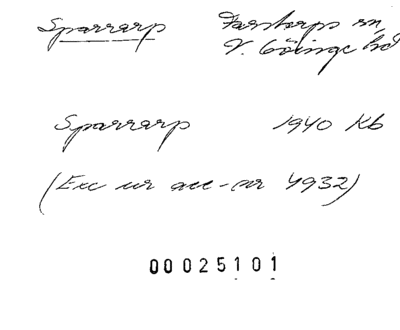 Sparrarp Farstorps sn
V. Göinge hd
Sparrarp 1940 Kb
(Exc ur acc-nr 4932)
00025101